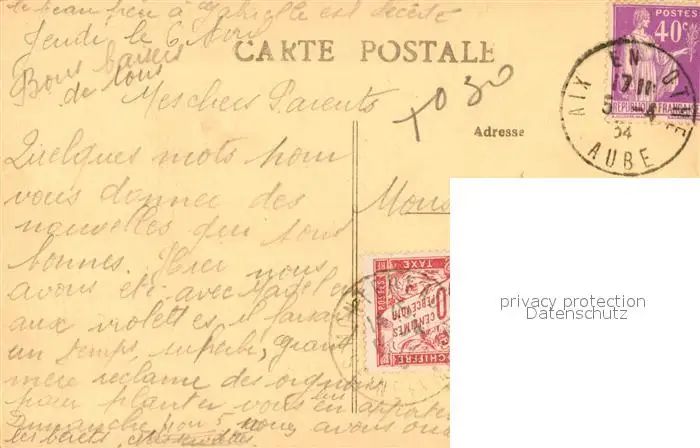 le beau frère à Gabrielle est décédé
Jeudi le 6 Avril
Bons baisers
de tous
CARTE POSTALE
POSTES
40c
REPUBLIQUE FRANÇAISE
AIX EN OTHE
17 11
5 -4
34
AUBE
Mes chers Parents
+0 30
Adresse
Quelques mots pour
vous donner des
nouvelles qui sont
bonnes. Hier nous
avons été avec
aux violettes, il faisait
un temps superbe, Grand
mère réclame des oignons
pour planter vous lui en apporterez
Dimanche nous avons
les bérets
Mons
TAXE
POSTES
CENTIMES
A PERCEVOIR
CHIFFRE
privacy protection
Datenschutz